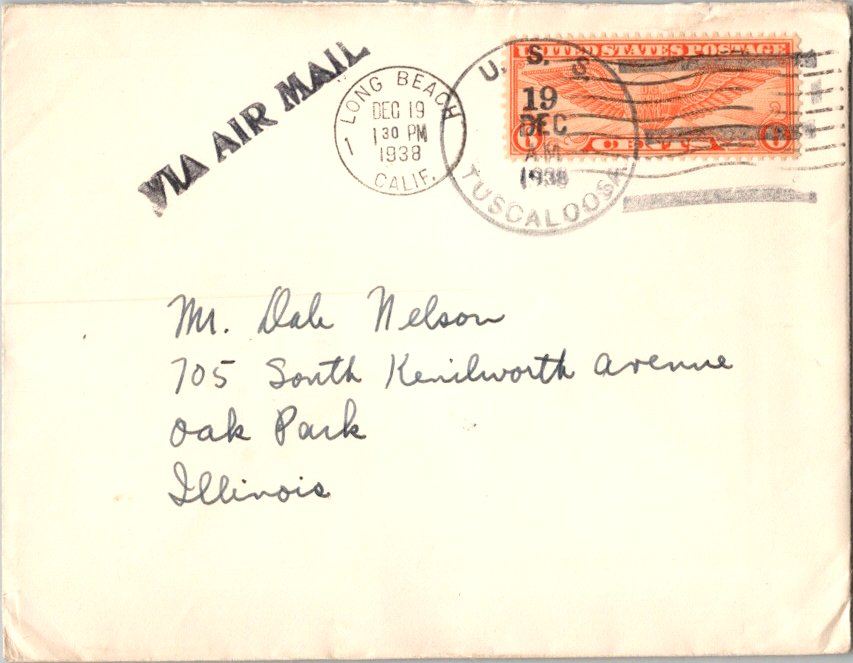 VIA AIR MAIL
LONG BEACH
DEC 19
1 30 PM
1938
CALIF.
1
U. S. S.
19
DEC
AM
1938
TUSCALOOSA
UNITED STATES POSTAGE
6 CENTS 6
Mr. Dale Nelson
705 South Kenilworth Avenue
Oak Park
Illinois